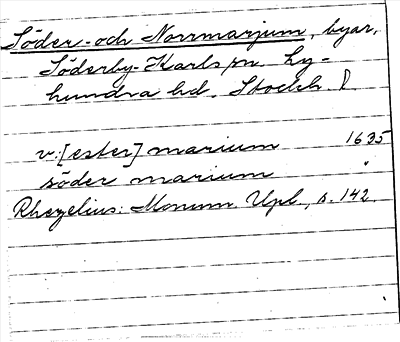 Söder- och Norrmarjum, byar,
Söderby-Karls sn. Ly-
hundra hd. Stockh. l
v:[ester] marium 1635
söder marium "
Rhezelius: Monum Upl., s. 142.